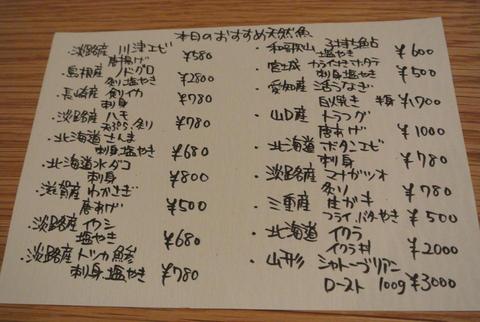 本日のおすすめ天然魚
・淡路産 川津エビ
唐揚げ ¥580
・島根産 ノドグロ
炙り 塩やき ¥2800
・長崎産 剣イカ
刺身 ¥780
・淡路産 ハモ
天ぷら、炙り ¥780
・北海道 さんま
刺身 塩やき ¥680
・北海道 水ダコ
刺身 ¥800
・滋賀産 わかさぎ
唐あげ ¥500
・淡路産 イワシ
塩やき ¥680
・淡路産
刺身、塩やき ¥780
・和歌山
塩やき ¥600
・宮城
刺身 塩やき ¥500
・愛知産 活うなぎ
白焼き ¥1700
・山口産 トラフグ
唐あげ ¥1000
・北海道 ボタンエビ
刺身 ¥780
・淡路産 マナガツオ
炙り ¥780
・三重産 生ガキ
フライ、バターやき ¥500
・北海道 イクラ
¥2000
・山形 シャトーブリアン
ロースト 100g ¥3000